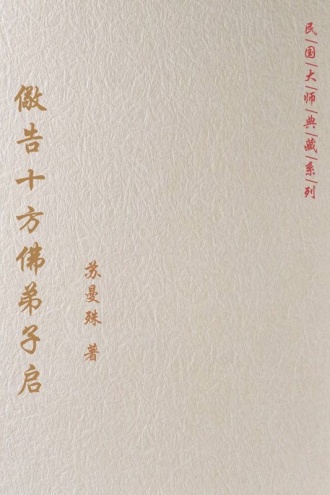 民|国|大|师|典|藏|系|列
儆告十方佛弟子启
苏曼殊 著